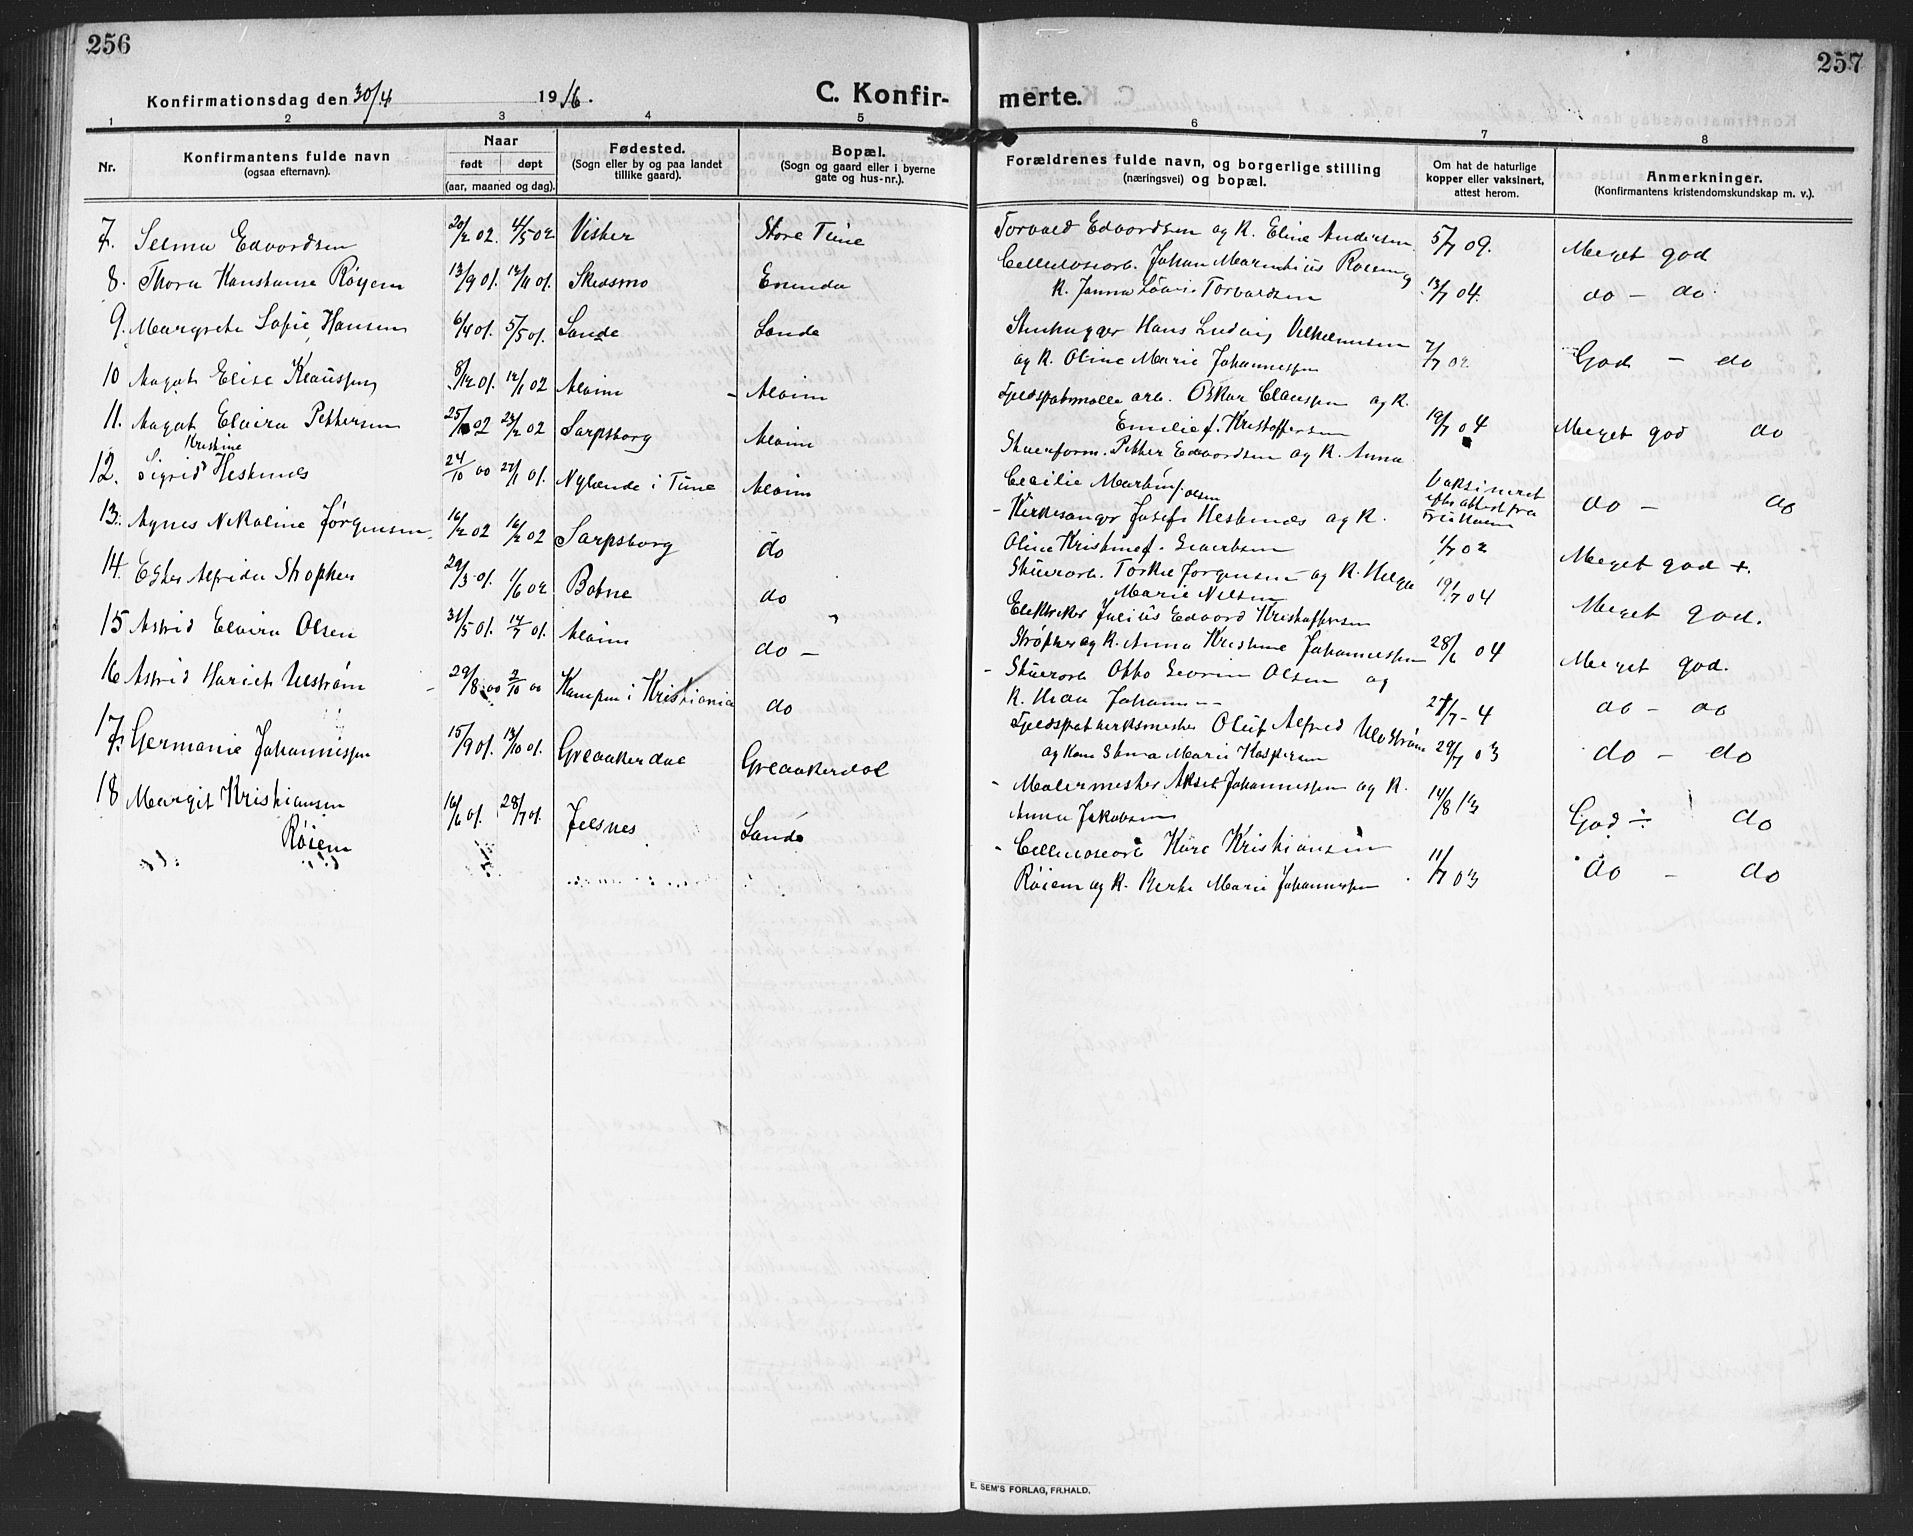 256
257
Konfirmationsdag den 30/4 1916.
C. Konfir- merte.
1 2 3 4 5 6 7 8
Nr.
Konfirmantens fulde navn
(ogsaa efternavn).
Naar
født døpt
(aar, maaned og dag).
Fødested.
(Sogn eller by og paa landet
tillike gaard).
Bopæl.
(Sogn og gaard eller i byerne
gate og hus-nr.).
Forældrenes fulde navn, og borgerlige stilling
(næringsvei) og bopæl.
Om hat de naturlige
kopper eller vaksinert,
attest herom.
Anmerkninger.
(Konfirmantens kristendomskundskap m. v.).
7. Selma Edvardsen 20/2 02. 4/5 02 Visker Store Tune
8. Thora Konstanse Røyem 13/9 01. Skedsmo
9. Margrete Sofie Hansen 6/4 01. 5/5 01. Sande Sande
10 Aagot Elise Klaussen 8/12 01. 12/1 02 Alvim - Alvim
11. Aagot Elvira Pettersen 02 23/2 02 Sarpsborg Alvim
Kristine
12. Sigrid Heskenes 24/10 00 27/1 01. Nylænde i Tune Alvim
13. Agnes Nikoline Jørgensen. 16/2 02 Sarpsborg do
14. Alfrida 29/3 01. 1/6 02 Botne do
15 Astrid Elvira Olsen 31/5 01. 14/7 01. Alvim do -
16 Astrid Hariet Ulstrøm 29/8 00 2/10 00 Kampen i Kristiania do
17. Germanie Johannessen 15/9 01. 13/10 01. Greaakerdal Greaakerdal
18 Margit Kristiansen 16/6 01. 28/7 01. Jelsnes Sande
Røiem
Torvald Edvardsen og K. Eline Andersen. 5/7 09. Meget god
Cellulosearb. Johan og
K. Torvaldsen 13/7 04. do - do.
Stenhugger Hans Ludvig Vilhelmsen
og K. Oline Marie Johannessen 7/7 02 God - do
arb. Oskar Claussen og K.
Emilie f. Kristoffersen 19/7 04 Meget god do
Petter Edvardsen og K. Anna
Cecilie Martin f. Olsen Vaksineret
efter attest fra do - do
Kirkesanger Josef Heskenes og K.
Oline Kristine f. 1/7 02 Meget god +.
Jørgensen og K. Helga
Marie Nilsen 19/7 04 Meget god.
Elektriker Julius Edvard Kristoffersen
og K. Anna Kristine Johannessen 28/6 04 Meget god.
Otto Severin Olsen og
K. 4 do - do
Oluf Alfred Ulvstrøm
og Kone Marie Kaspersen 29/7 03 do - do
- Malermester Aksel Johannessen og K.
Anna Jakobsen 14/8 13 God ÷ do
- Cellulosearb. Kåre Kristiansen
Røiem og K. Berte Marie Johannessen 11/7 03 do - do
E. SEM'S FORLAG, FR.HALD.